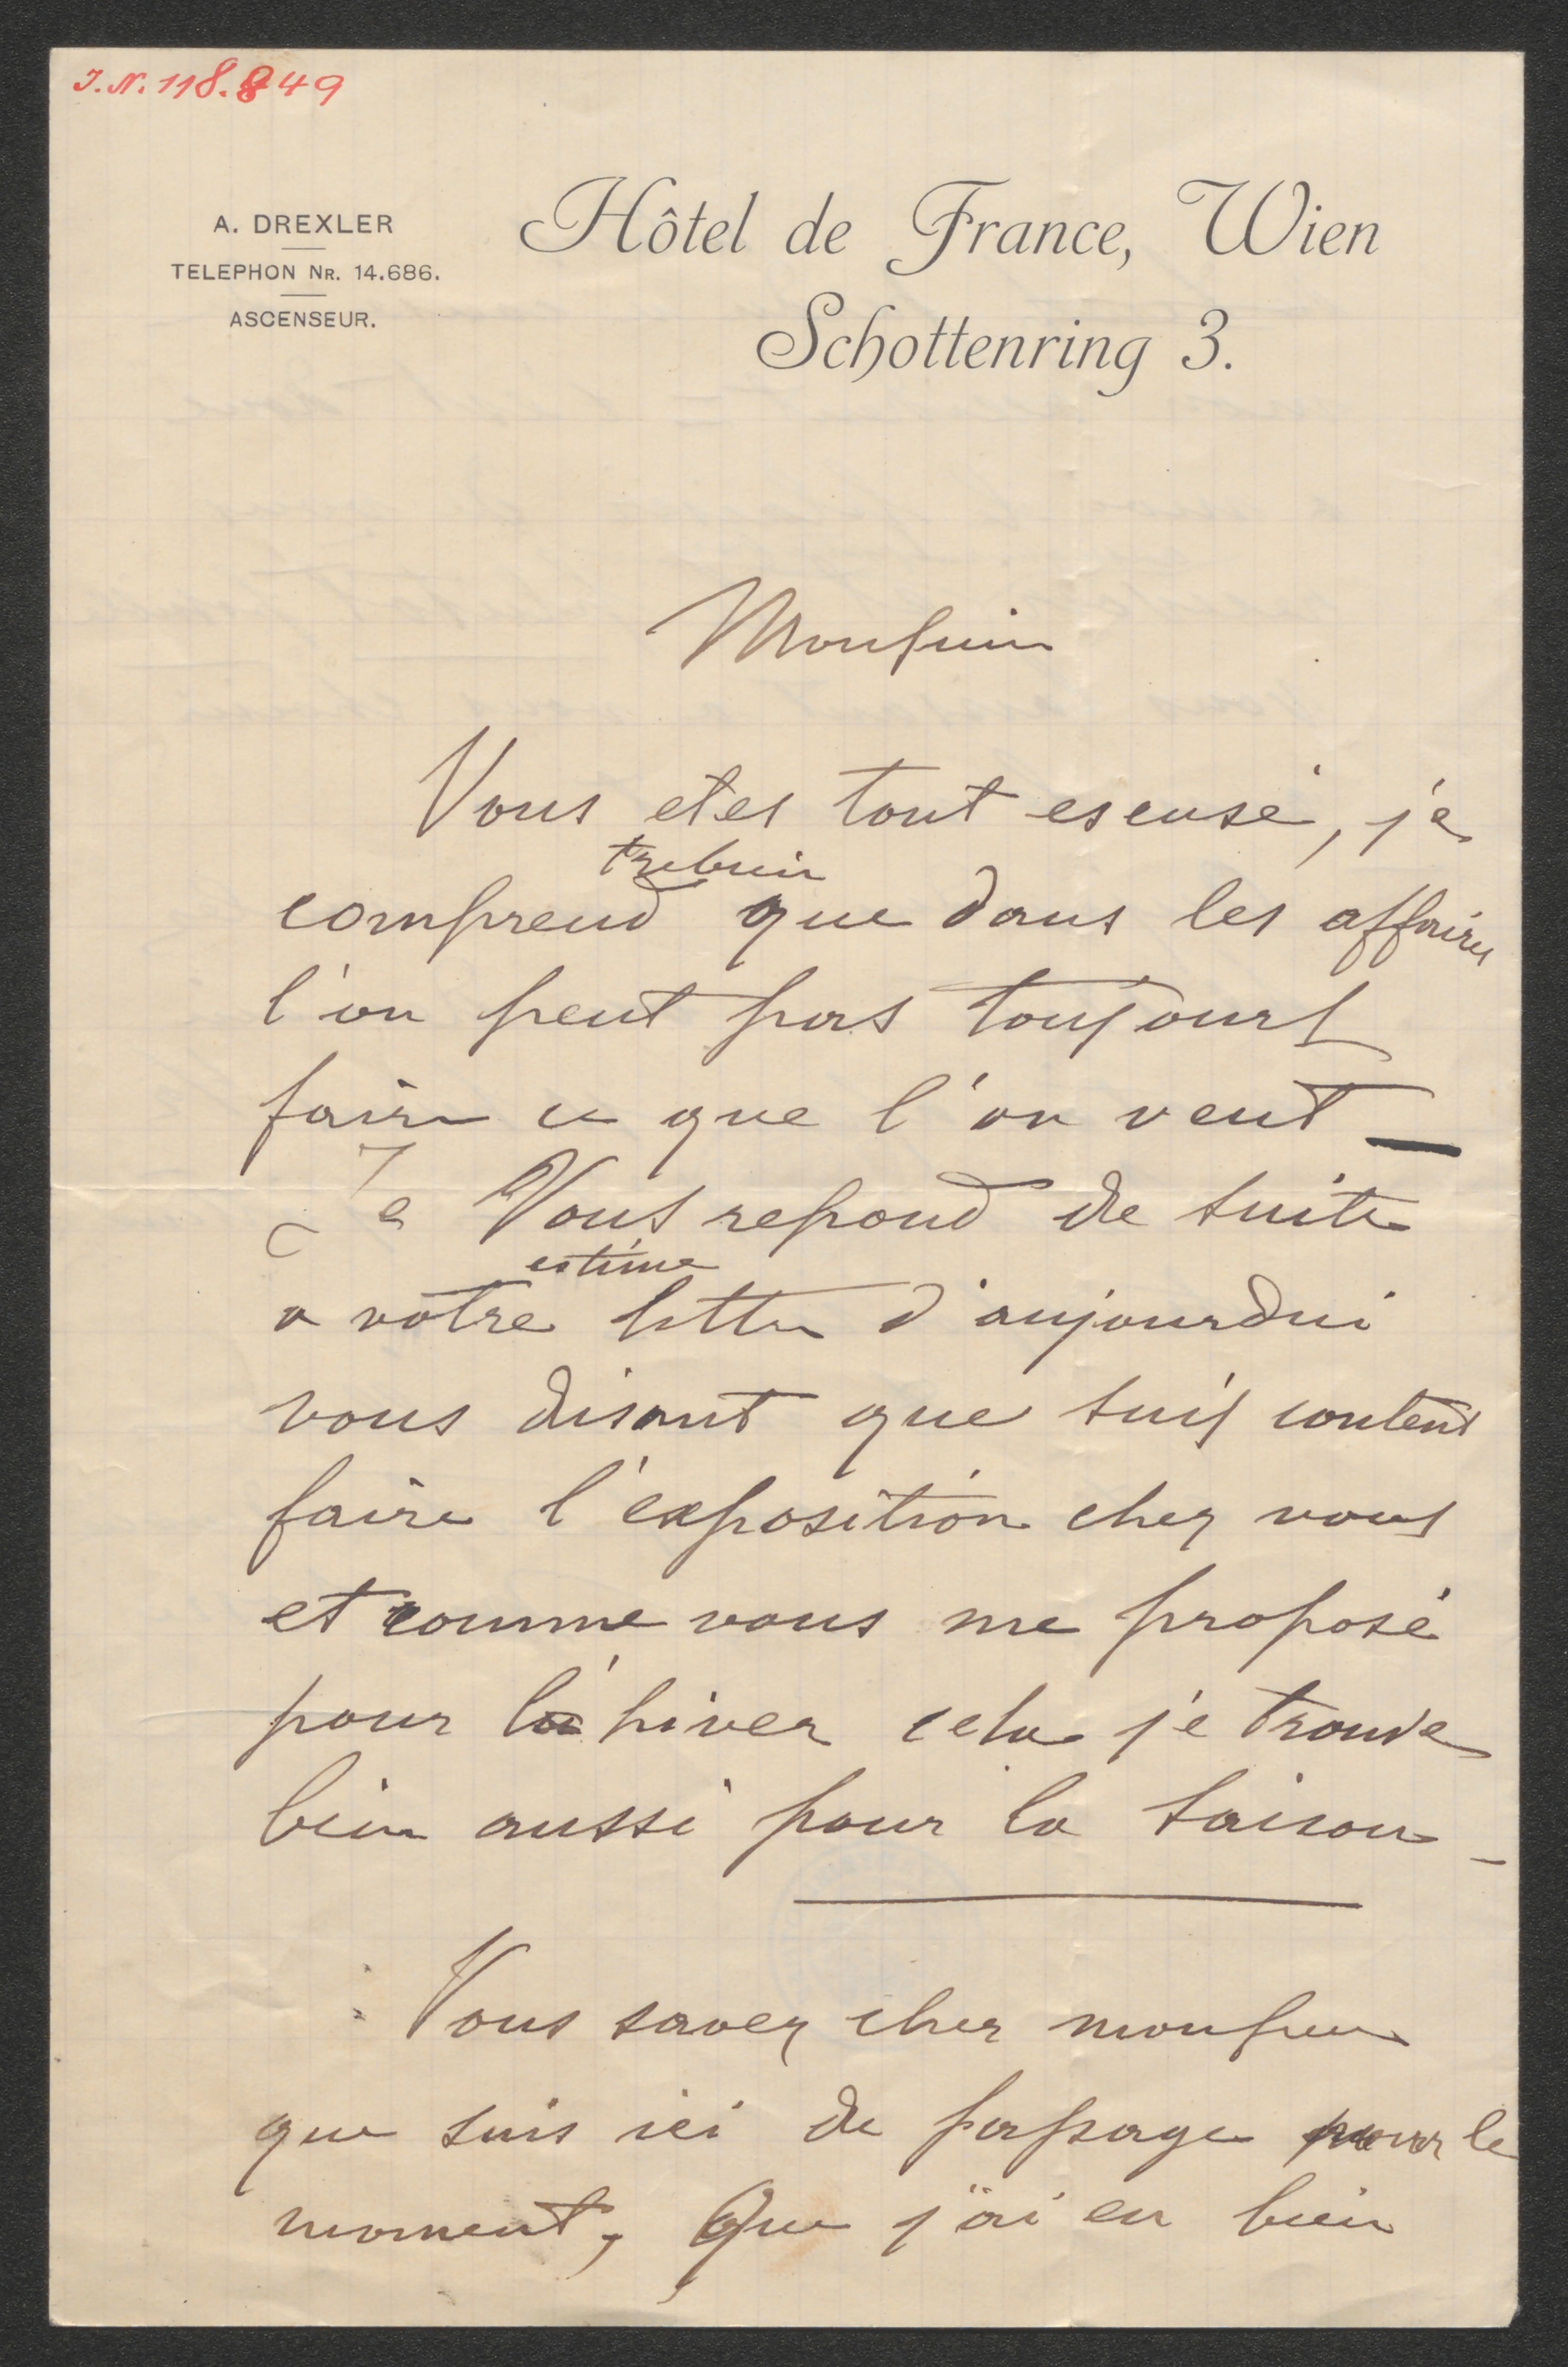 J.N. 118.849
A. DREXLER
TELEPHON NR. 14.686.
ASCENSEUR.
Hôtel de France, Wien
Schottenring 3.
Monsieur
Vous etes tout escusé, je
trebien
comprend que dans les affaires
l'on peut pas toujours
faire ce que l'on veut —
Je Vous repond de suite
estime
a votre lettre d'aujourdui
vous disant que suis content
faire l'éxposition chez vous
et comme vous me proposé
pour l'hiver cela je trouve
bien aussi pour la saison —
Vous savez cher monsieur
que suis ici de passage pour le
moment, Que j'ai eu bien